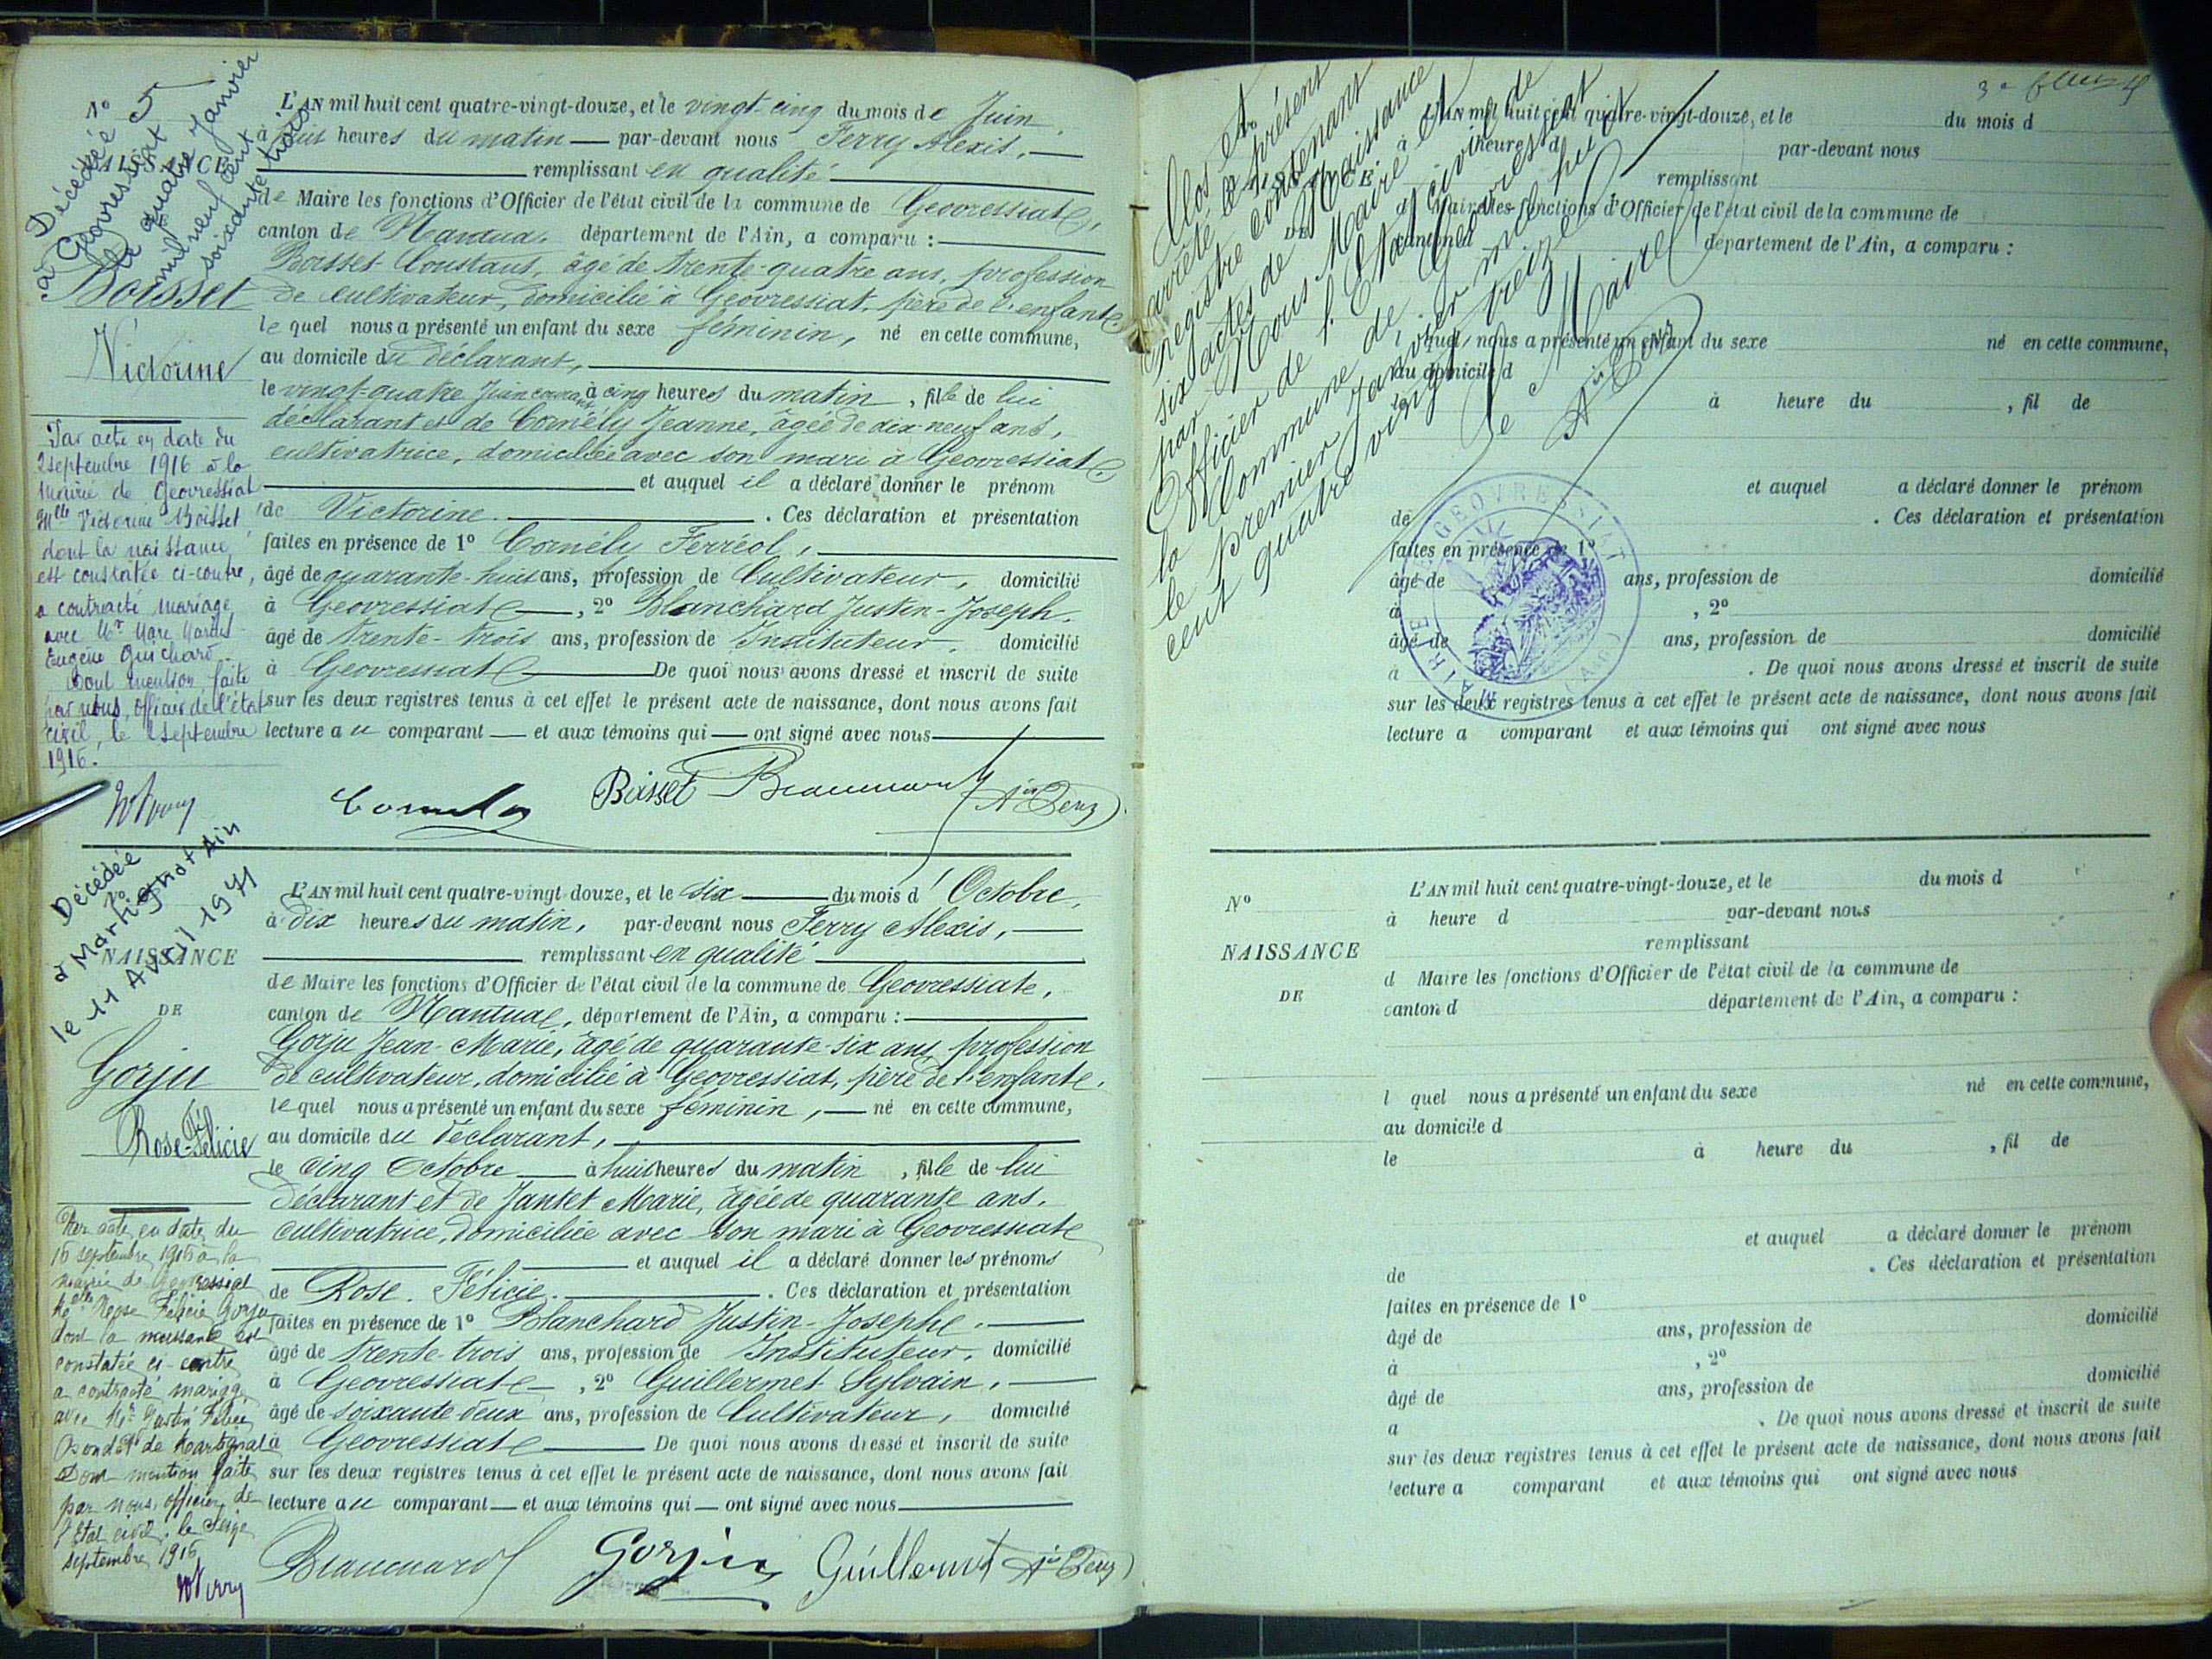 N° 5
Décédée
à Géovressiat
le quatre Janvier
mil neuf cent
soixante trois
NAISSANCE
Boisset
Victorine
Par acte en date du
2 septembre 1916 à la
Mairie de Géovressiat
Mlle Victorine Boisset
dont la naissance
est constatée ci-contre,
a contracté mariage
avec Mr Marc Marius
Eugène Guichard
Dont mention faite
par nous, officier de l'état
civil, le 2 septembre
1916.
L'AN mil huit cent quatre-vingt-douze, et le vingt-cinq du mois de Juin,
à huit heures du matin — par-devant nous Ferry Alexis,
remplissant en qualité
de Maire les fonctions d'Officier de l'état civil de la commune de Geovressiat,
canton de Nantua, département de l'Ain, a comparu :
Boisset Constant, âgé de trente-quatre ans, profession
de cultivateur, domicilié à Geovressiat, père de l'enfant
le quel nous a présenté un enfant du sexe féminin, né en cette commune,
au domicile du déclarant,
le vingt-quatre Juin courant à cinq heures du matin, fille de lui
déclarant et de Comély Jeanne, âgée de dix-neuf ans,
cultivatrice, domiciliée avec son mari à Geovressiat
et auquel il a déclaré donner le prénom
de Victorine. Ces déclaration et présentation
faites en présence de 1° Cornély Ferréol,
âgé de quarante-huit ans, profession de Cultivateur, domicilié
à Geovressiat —, 2° Blanchard Justin-Joseph.
âgé de trente-trois ans, profession de Instituteur, domicilié
à Geovressiat — De quoi nous avons dressé et inscrit de suite
sur les deux registres tenus à cet effet le présent acte de naissance, dont nous avons fait
lecture au comparant — et aux témoins qui — ont signé avec nous
Boisset Blanchard
Décédée
à Martignat Ain
le 11 Avril 1971
N°
NAISSANCE
DE
Gorju
Rose-Félicie
Par acte en date du
16 septembre 1916 à la
mairie de Géovressiat
Melle Rose Félicie Gorju
dont la naissance est
constatée ci-contre
a contracté mariage
avec Mr
de Martignat
Dont mention faite
par nous, officier de
l'Etat civil, le seize
septembre 1916
L'AN mil huit cent quatre-vingt-douze, et le six — du mois d'Octobre,
à dix heures du matin, par-devant nous Ferry Alexis,
remplissant en qualité
de Maire les fonctions d'Officier de l'état civil de la commune de Geovressiat,
canton de Nantua, département de l'Ain, a comparu :
Gorju Jean-Marie, âgé de quarante-six ans, profession
de cultivateur, domicilié à Geovressiat, père de l'enfant.
le quel nous a présenté un enfant du sexe féminin, — né en cette commune,
au domicile du déclarant,
le cinq Octobre — à huit heures du matin, fille de lui
déclarant et de Jantet Marie, âgée de quarante ans,
cultivatrice, domiciliée avec son mari à Geovressiat
et auquel il a déclaré donner les prénoms
de Rose. Félicie. Ces déclaration et présentation
faites en présence de 1° Blanchard Justin-Joseph.
âgé de trente-trois ans, profession de Instituteur, domicilié
à Geovressiat —, 2° Guillermet Sylvain,
âgé de soixante-deux ans, profession de Cultivateur, domicilié
à Geovressiat — De quoi nous avons dressé et inscrit de suite
sur les deux registres tenus à cet effet le présent acte de naissance, dont nous avons fait
lecture au comparant — et aux témoins qui — ont signé avec nous
Blanchard Gorju Guillermet
Clos et
arrêté le présent
registre contenant
six actes de Naissance
par Nous Maire et
Officier de l'Etat civil de
la Commune de Geovressiat
le premier Janvier mil huit
cent quatre vingt treize
Le Maire
L'AN mil huit cent quatre-vingt-douze, et le du mois d
à heure d par-devant nous
remplissant
d Maire les fonctions d'Officier de l'état civil de la commune de
canton d département de l'Ain, a comparu :
l quel nous a présenté un enfant du sexe né en cette commune,
au domicile d
le à heure du , fil de
et auquel a déclaré donner le prénom
de . Ces déclaration et présentation
faites en présence de 1°
âgé de ans, profession de domicilié
à , 2°
âgé de ans, profession de domicilié
à . De quoi nous avons dressé et inscrit de suite
sur les deux registres tenus à cet effet le présent acte de naissance, dont nous avons fait
lecture a comparant et aux témoins qui ont signé avec nous
MAIRIE DE GEOVRESSIAT (AIN)
N°
NAISSANCE
DE
L'AN mil huit cent quatre-vingt-douze, et le du mois d
à heure d par-devant nous
remplissant
d Maire les fonctions d'Officier de l'état civil de la commune de
canton d département de l'Ain, a comparu :
l quel nous a présenté un enfant du sexe né en cette commune,
au domicile d
le à heure du , fil de
et auquel a déclaré donner le prénom
de . Ces déclaration et présentation
faites en présence de 1°
âgé de ans, profession de domicilié
à , 2°
âgé de ans, profession de domicilié
a . De quoi nous avons dressé et inscrit de suite
sur les deux registres tenus à cet effet le présent acte de naissance, dont nous avons fait
lecture a comparant et aux témoins qui ont signé avec nous